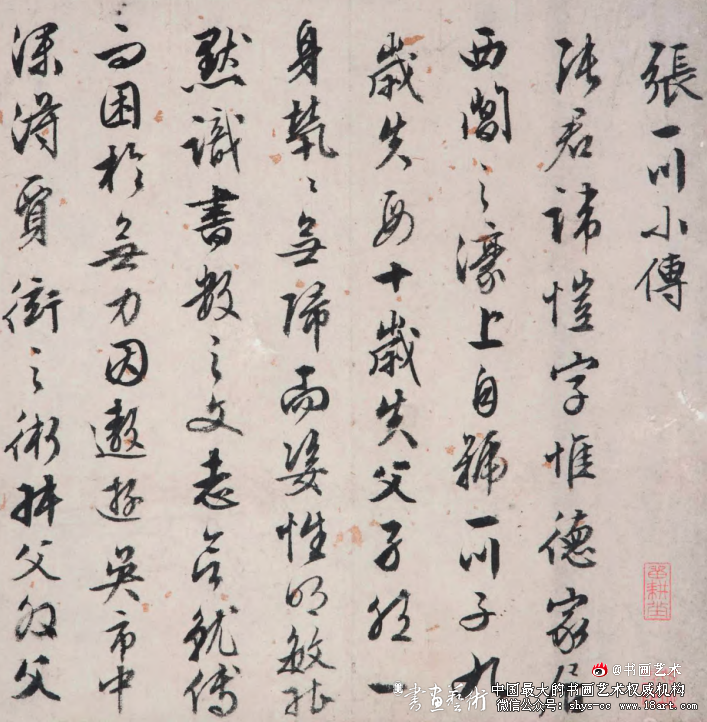 張一川小傳
張君諱愷字惟德家居
西閶之濠上自號一川子九
歲失母十歲失父子然一
身煢〻無歸而姿性明敏能
默識書數之文志欲就傅
而困於無力因遨遊吳市中
深得賈衒之術拜父友父
書畫藝術
@书画艺术
中国最大的书画艺术权威机构
微信公众号：shys-cc www.18art.com